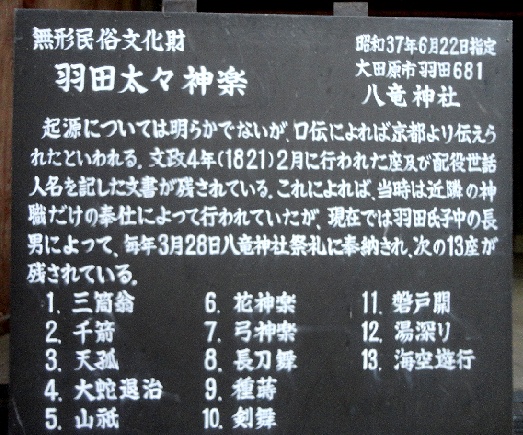 無形民俗文化財
昭和37年6月22日指定
大田原市羽田681
羽田太々神楽
八竜神社
起源については明らかでないが、口伝によれば京都より伝えら
れたといわれる。文政4年(1821)2月に行われた座及び配役世話
人名を記した文書が残されている。これによれば、当時は近隣の神
職だけの奉仕によって行われていたが、現在では羽田氏子中の長
男によって、毎年3月28日八竜神社祭礼に奉納され、次の13座が
残されている。
1. 三筒翁
6. 花神楽
11. 磐戸開
2. 千箭
7. 弓神楽
12. 湯深り
3. 天孤
8. 長刀舞
13. 海空遊行
4. 大蛇退治
9. 種蒔
5. 山祇
10. 剣舞